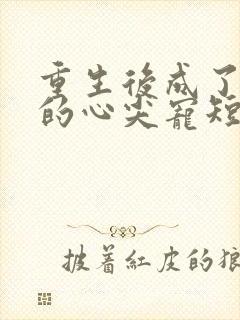 重生後成了
的心尖寵短
披着紅皮的狼